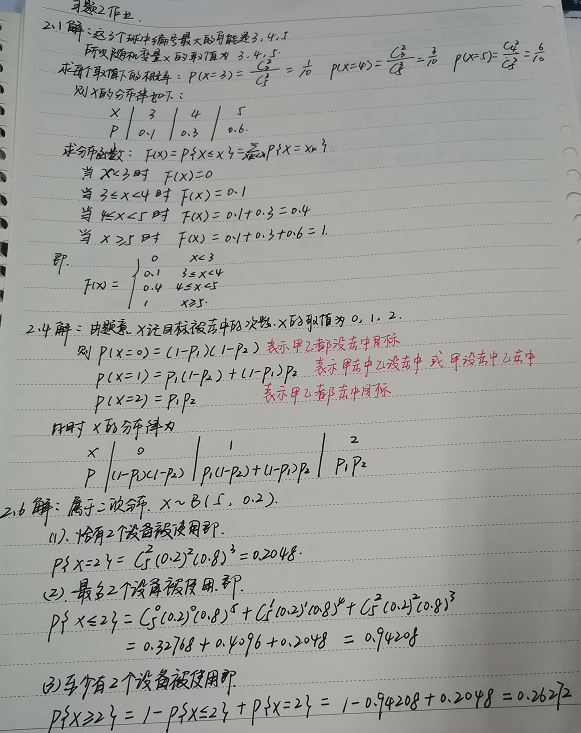 习题2作业.
2.1解:这3个球中编号最大的可能是3,4,5
所以随机变量X的取值为3,4,5.
求每个取值下的概率: P(X=3)=C₂²/C₅³=1/10 P(X=4)=C₃²/C₅³=3/10 P(X=5)=C₄²/C₅³=6/10
则X的分布律如下:
X | 3 | 4 | 5
P | 0.1 | 0.3 | 0.6.
求分布函数: F(x)=P{X≤x}=Σ P{X=xₖ}
当 x<3时 F(x)=0
当 3≤x<4时 F(x)=0.1
当 4≤x<5时 F(x)=0.1+0.3=0.4
当 x≥5时 F(x)=0.1+0.3+0.6=1.
即.
0 x<3
0.1 3≤x<4
F(x)= { 0.4 4≤x<5
1 x≥5.
2.4解:由题意,X记目标被击中的次数.X的取值为0,1,2.
则 P(X=0)=(1-P₁)(1-P₂) 表示甲乙都没击中目标
P(X=1)=P₁(1-P₂)+(1-P₁)P₂ 表示甲击中乙没击中 或 甲没击中乙击中
P(X=2)=P₁P₂ 表示甲乙都击中目标
此时X的分布律为
X | 0 | 1 | 2
P | (1-P₁)(1-P₂) | P₁(1-P₂)+(1-P₁)P₂ | P₁P₂
2.6解:属于二项分布. X~B(5,0.2).
(1).恰有2个设备被使用即.
P{X=2}=C₅²(0.2)²(0.8)³=0.2048.
(2).最多2个设备被使用.即.
P{X≤2}=C₅⁰(0.2)⁰(0.8)⁵+C₅¹(0.2)¹(0.8)⁴+C₅²(0.2)²(0.8)³
=0.32768+0.4096+0.2048 =0.94208
(3)至少有2个设备被使用即
P{X≥2}=1-P{X≤2}+P{X=2}=1-0.94208+0.2048=0.26272